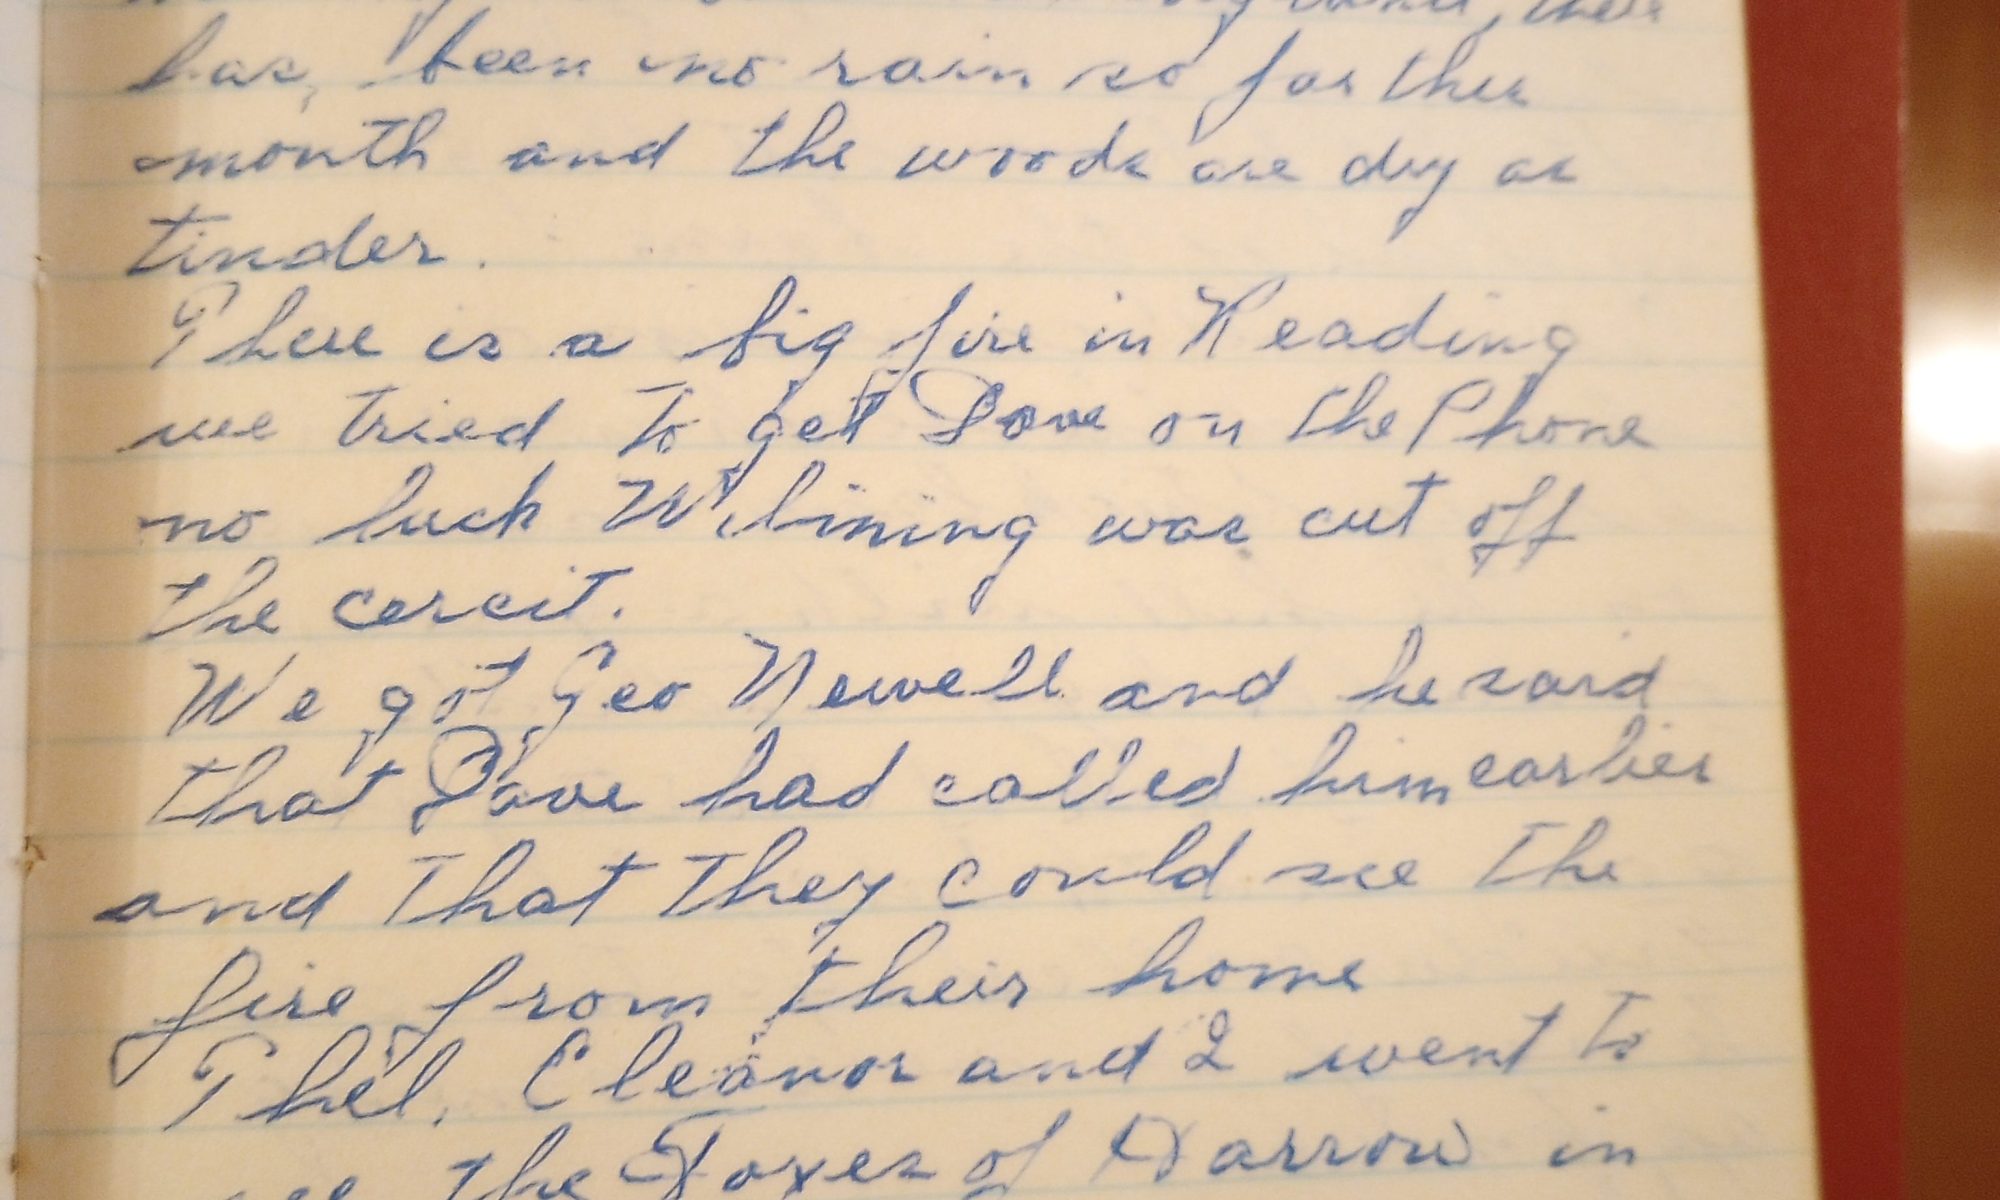 there
has, been no rain so far this
month and the woods are dry as
tinder.
There is a big fire in Reading
we tried to get Dave on the Phone
no luck Wilmining was cut off
the cercit.
We got Geo Newell and he said
that Dave had called him earlier
and that they could see the
fire from their home
Thel, Eleanor and I went to
see the Foxes of Harrow in